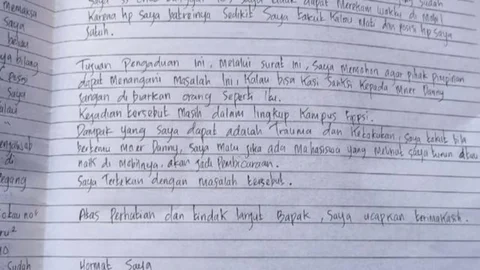 memaksa
Saya
Karena hp Saya batreinya Sedikit Saya takut Kalau Mati dan posisi hp Saya
Jatuh.
Tujuan Pengaduan ini, Melalui surat ini, Saya Memohon agar pihak pimpinan
dapat Menangani Masalah Ini, Kalau bisa Kasi Sanksi Kepada Mner Danny
Jangan di biarkan orang Seperti itu.
Kejadian tersebut Masih dalam lingkup Kampus Fippsi.
Dampak yang Saya dapat adalah Trauma dan Ketakutan, Saya takut bila
bertemu Mner Danny, Saya Malu jika ada Mahasiswa yang Melihat Saya turun atau
naik di Mobilnya, akan Jadi Pembicaraan.
Saya Tertekan dengan masalah tersebut.
Atas Perhatian dan tindak lanjut Bapak, Saya ucapkan terimakasih.
Sudah
Hormat Saya